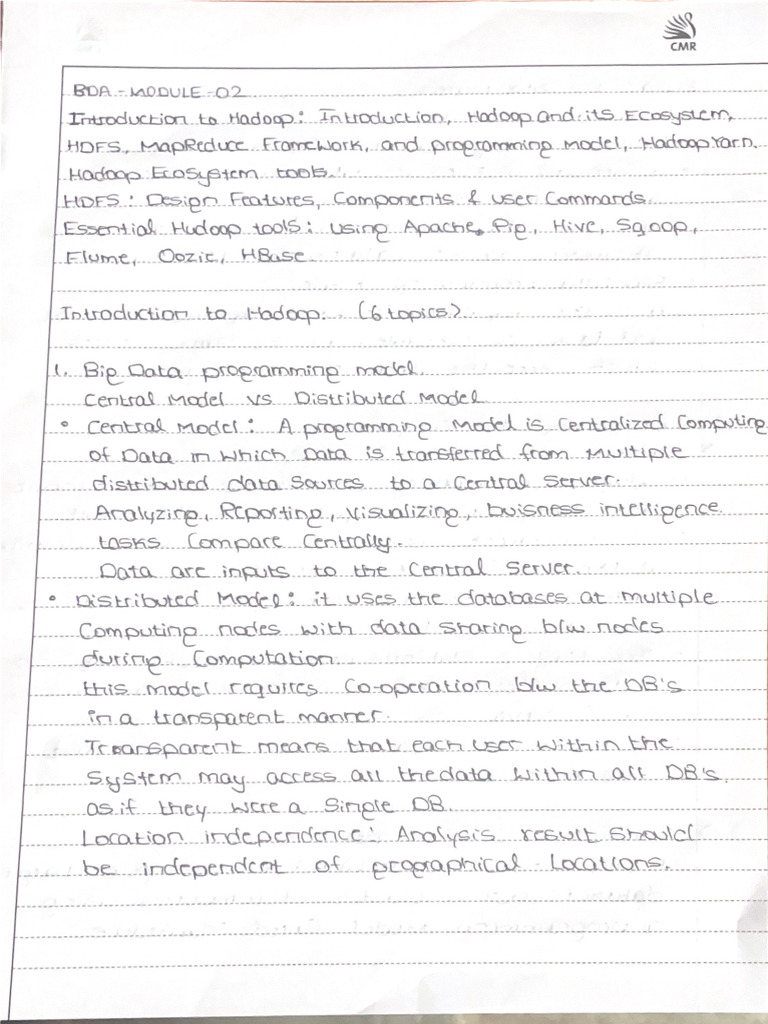 CMR
BDA - MODULE - 02
Introduction to Hadoop: Introduction, Hadoop and its Ecosystem,
HDFS, MapReduce Framework, and programming model, Hadoop Yarn.
Hadoop EcoSystem tools.
HDFS: Design Features, Components & user Commands
Essential Hudoop tools: using Apache, Pig, Hive, Sqoop,
Flume, Oozie, HBase
Introduction to Hadoop. (6 topics)
1. Big Data programming model.
Central Model vs Distributed Model
• Central Model: A programming Model is Centralized Computing
of Data in which Data is transferred from Multiple
distributed data Sources to a Central Server.
Analyzing, Reporting, Visualizing, buisness intelligence
tasks Compare Centrally.
Data are inputs to the Central Server.
• Distributed Model: it uses the databases at multiple
Computing nodes with data sharing b/w nodes
during Computation.
this model requires Co-operation b/w the DB's
in a transparent manner.
Transparent means that each user within the
System may access all the data within all DB's
as if they were a Single DB.
Location independence: Analysis result should
be independent of geographical Locations.